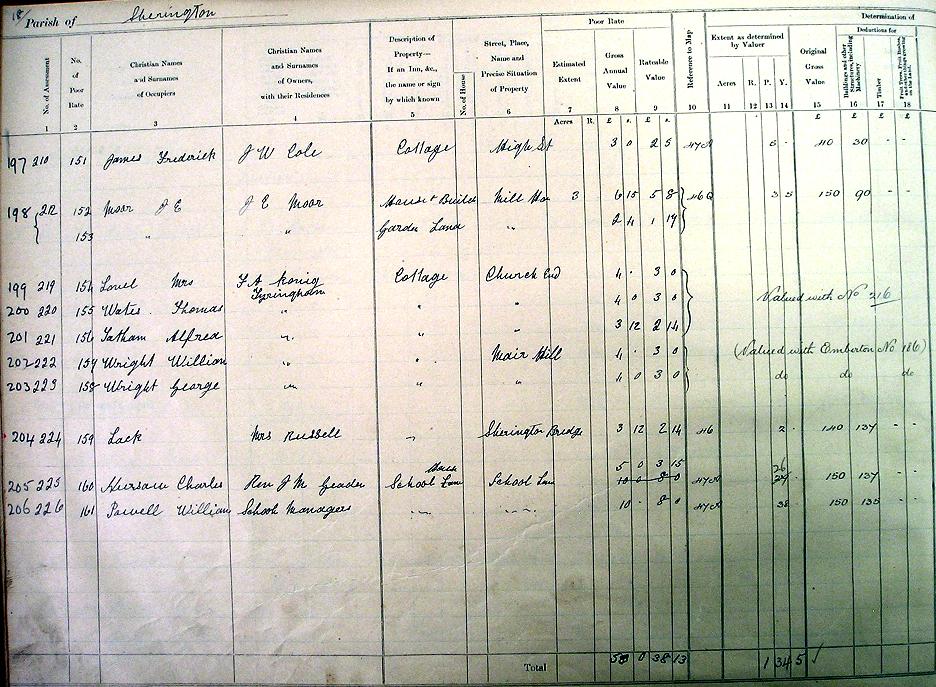 18/ Parish of Sherington
Poor Rate
Determination of
No. of Assessment
No. of Poor Rate
Christian Names and Surnames of Occupiers
Christian Names and Surnames of Owners, with their Residences
Description of Property— If an Inn, &c., the name or sign by which known
No. of House
Street, Place, Name and Precise Situation of Property
Estimated Extent
Gross Annual Value
Rateable Value
Reference to Map
Extent as determined by Valuer
Acres R. P. Y.
Original Gross Value
Deductions for
Buildings and other Structures, including Machinery
Timber
Fruit Trees, Fruit Bushes, and other things growing on the Land.
1 2 3 4 5 6 7 8 9 10 11 12 13 14 15 16 17 18
Acres R. £ s. £ s. £ £ £ £
197 210 151 James Frederick J W Cole Cottage High St 3 0 2 5 5 - 110 30 - -
198 212 152 Moor J E J E Moor House & Mill 3 6 15 5 8 3 5 150 90 - -
153 " " Garden Land " 2 4 1 17
199 219 154 Mrs F A Konig Cottage Church End 4 . 3 0
Tyringham
200 220 155 Thomas " " " 4 0 3 0 Valued with No 216
201 221 156 Tatham Alfred " " " 3 12 2 14
202 222 157 Wright William " " Mair Hill 4 . 3 0 (Valued with Emberton No 186)
203 223 158 Wright George " " " 4 0 3 0 do do do
204 224 159 Lack Mrs Russell " Sherington Bridge 3 12 2 14 46 2 . 140 137 - -
House 5 0 3 15 26
205 225 160 Charles Rev J M School Lane School Lane 10 0 8 0 27 150 137 - -
206 226 161 Powell William School Managers " " 10 - 8 0 38 150 135 - -
Total 58 0 38 13 1 34 5 /